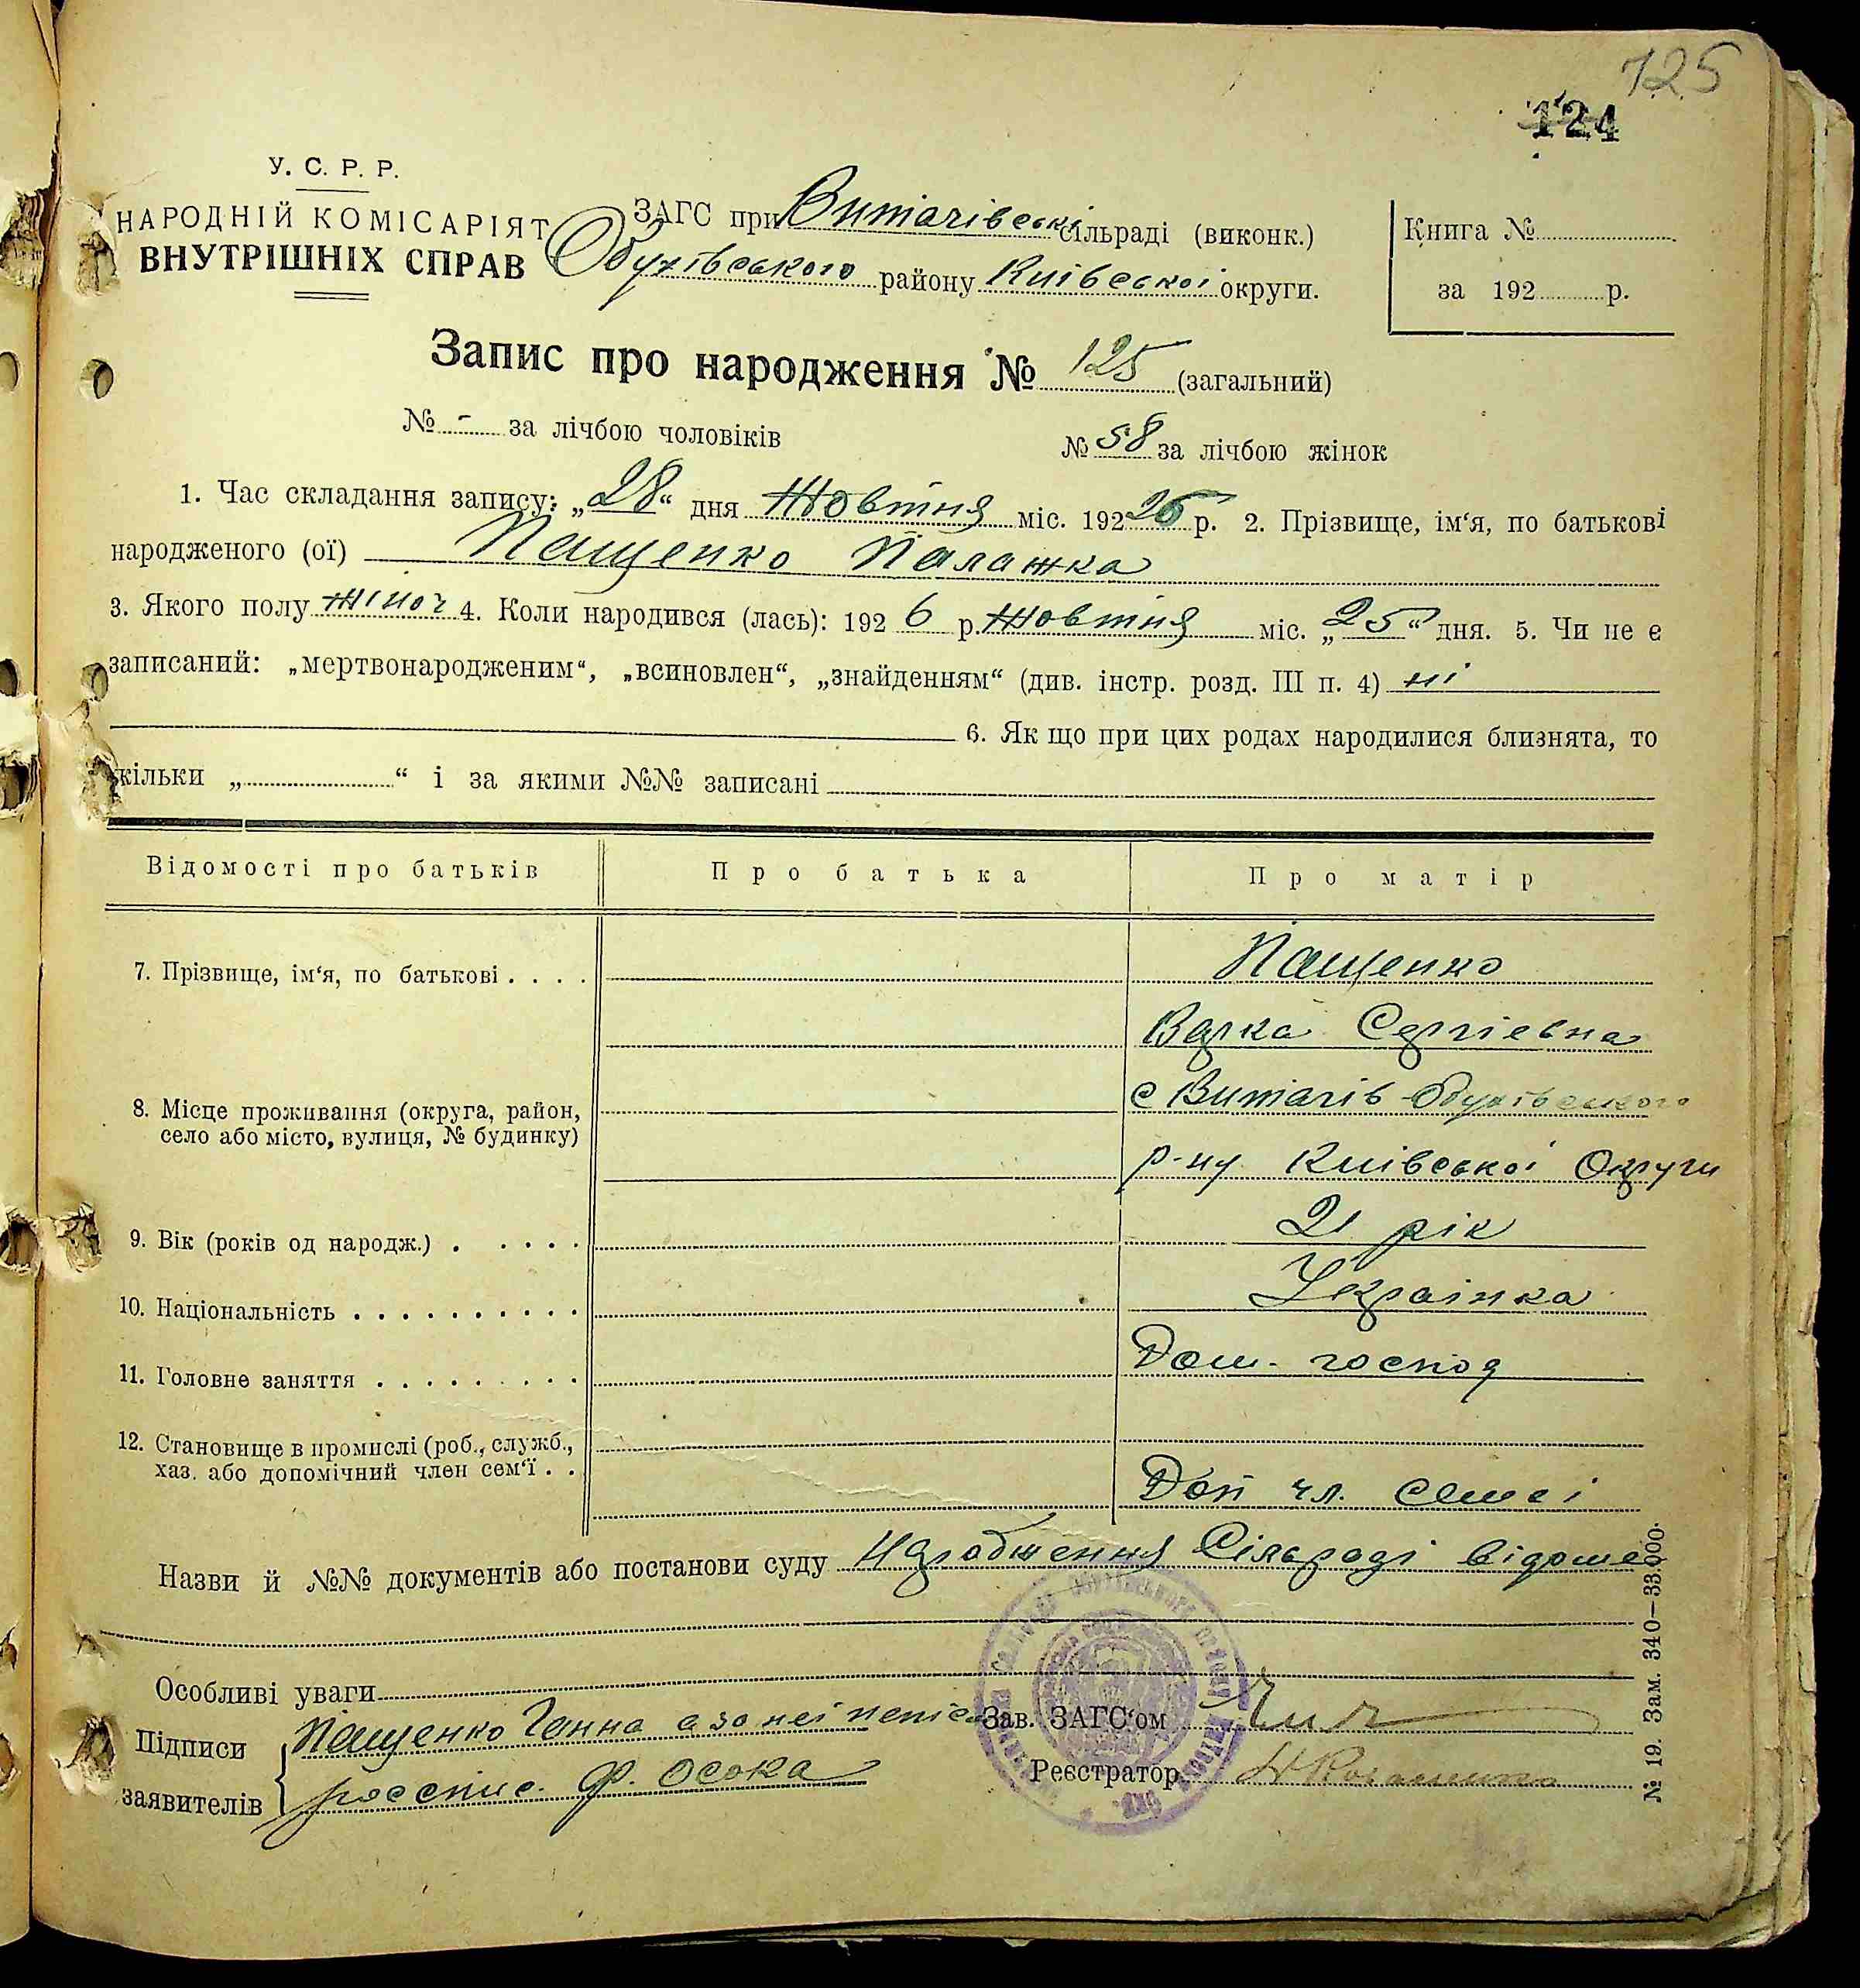 125
124
У. С. Р. Р.
НАРОДНІЙ КОМІСАРІЯТ
ВНУТРІШНІХ СПРАВ
ЗАГС при Витачівській сільраді (виконк.)
Обухівського району Київської округи.
Книга №
за 192 р.
Запис про народження № 125 (загальний)
№ - за лічбою чоловіків № 58 за лічбою жінок
1. Час складання запису: „28“ дня Жовтня міс. 192 26 р. 2. Прізвище, ім‘я, по батькові
народженого (ої) Пащенко Палажка
3. Якого полу жіноч 4. Коли народився (лась): 192 6 р. Жовтня міс. „25“ дня. 5. Чи не є
записаний: „мертвонародженим“, „всиновлен“, „знайденням“ (див. інстр. розд. III п. 4) ні
6. Як що при цих родах народилися близнята, то
кільки „ “ і за якими №№ записані
Відомості про батьків Про батька Про матір
7. Прізвище, ім‘я, по батькові . . . . Пащенко
Варка Сергіевна
8. Місце проживання (округа, район, с Витачів Обухівського
село або місто, вулиця, № будинку)
р-ну Київської Округи
9. Вік (років од народж.) . . . . . 21 рік
10. Національність . . . . . . . . . . Українка
11. Головне заняття . . . . . . . . . Дом. господ
12. Становище в промислі (роб., служб.,
хаз. або допомічний член сем‘ї . . Доп чл. семеі
Назви й №№ документів або постанови суду Народження Сільраді відоме
Особливі уваги
Підписи Пащенко Ганна а за неі непіс
заявителів росспис. Ф. Осока
Зав. ЗАГС‘ом
Реєстратор
№ 19. Зам. 340—33.000.